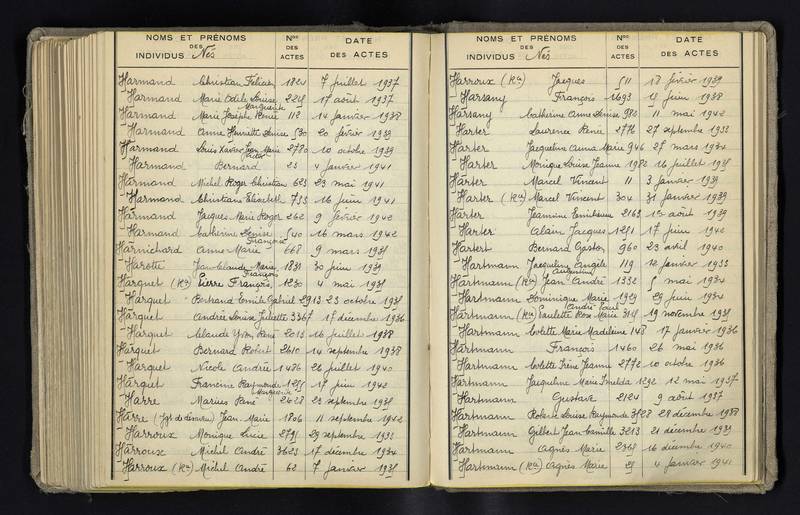 NOMS ET PRÉNOMS
DES
INDIVIDUS Nés
Nos
DES
ACTES
DATE
DES ACTES
Harmand Christian Félicien 1824 7 juillet 1937
Harmand Marie Odile Louise 17 août 1937
Marguerite
Harmand Marie Josèphe Renée 112 14 janvier 1938
Harmand Anne Henriette Denise 530 20 février 1939
Harmand Louis Xavier Jean Marie 2780 10 octobre 1939
Harmand Bernard 23 4 janvier 1941
Harmand Michel Roger Christian 623 23 mai 1941
Harmand Christiane Elisabeth 733 16 juin 1941
Harmand Jacques Marie Roger 262 9 février 1942
Harmand Catherine Denise 540 16 mars 1942
Françoise
Harnichard Anne Marie 668 9 mars
Harotte Jean Claude Marie 30 juin 1939
François
Harquet (Rte) Pierre François 1230 4 mai
Harquet Bertrand Emile Gabriel 2913 23 octobre
Harquet Andrée Louise Juliette 3367 17 décembre 1936
Harquet Claude Yvon René 2013 16 juillet 1938
Harquet Bernard Robert 2610 14 septembre 1938
Harquet Nicole Andrée 1486 26 juillet 1940
Harquet Francine Raymonde 17 juin 1942
Marguerite
Harre Marius René 2428 23 septembre
Harre Jean Marie 1806 11 septembre 1942
Harroux Monique Lucie 29 septembre 1933
Harroux Michel André 3623 17 décembre 1934
Harroux (Rte) Michel André 62 7 janvier
NOMS ET PRÉNOMS
DES
INDIVIDUS Nés
Nos
DES
ACTES
DATE
DES ACTES
Harroux (Rte) Jacques 511 18 février 1939
Harsany François 1693 juin 1938
Harsany Catherine Anne Denise 980 11 mai 1942
Harter Laurence Renée 2776 27 septembre 1933
Harter Jacqueline Anna Marie 946 27 mars 1934
Harter Monique Louise Jeanne 1982 16 juillet
Harter Marcel Vincent 11 3 janvier 1939
Harter (Rte) Marcel Vincent 304 31 janvier 1939
Harter Jeannine Emilienne 2163 août 1939
Harter Alain Jacques 1251 17 juin 1942
Hartert Bernard Gaston 960 23 avril 1940
Hartmann Jacqueline Angèle 119 12 janvier 1933
Augustine
Hartmann (Rte) Jean André 1332 5 mai 1934
Hartmann Dominique Marie 1929 29 juin 1934
Hartmann (Rte) Paulette Rose Marie 19 novembre
Hartmann Colette Marie Madeleine 148 17 janvier 1936
Hartmann François 1460 26 mai 1936
Hartmann Colette Irène Jeanne 2772 10 octobre 1936
Hartmann Jacqueline Marie Imelda 1292 12 mai 1937
Hartmann Gustave 2124 9 août 1937
Hartmann Louise Raymonde 3628 28 décembre 1938
Hartmann Gilbert Jean Camille 3213 21 décembre 1939
Hartmann Agnès Marie 16 décembre 1940
Hartmann (Rte) Agnès Marie 4 janvier 1941